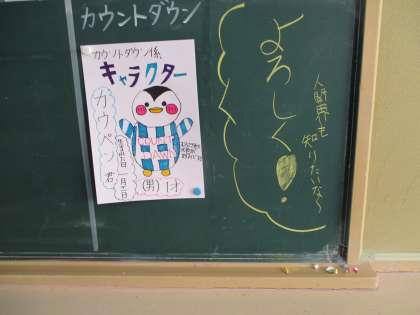 カウントダウン
カウントダウン係
キャラクター
カウペン君
生まれた日 一月二一日
COUNT
DOWN
(男)1才
よろしく!
人間界も
知りたいな〜